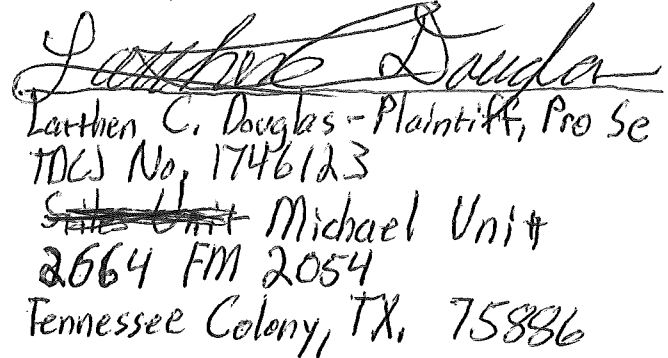 Larthen Douglas
Larthen C. Douglas - Plaintiff, Pro Se
TDCJ No. 1746123
Stiles Unit Michael Unit
2664 FM 2054
Tennessee Colony, TX, 75886